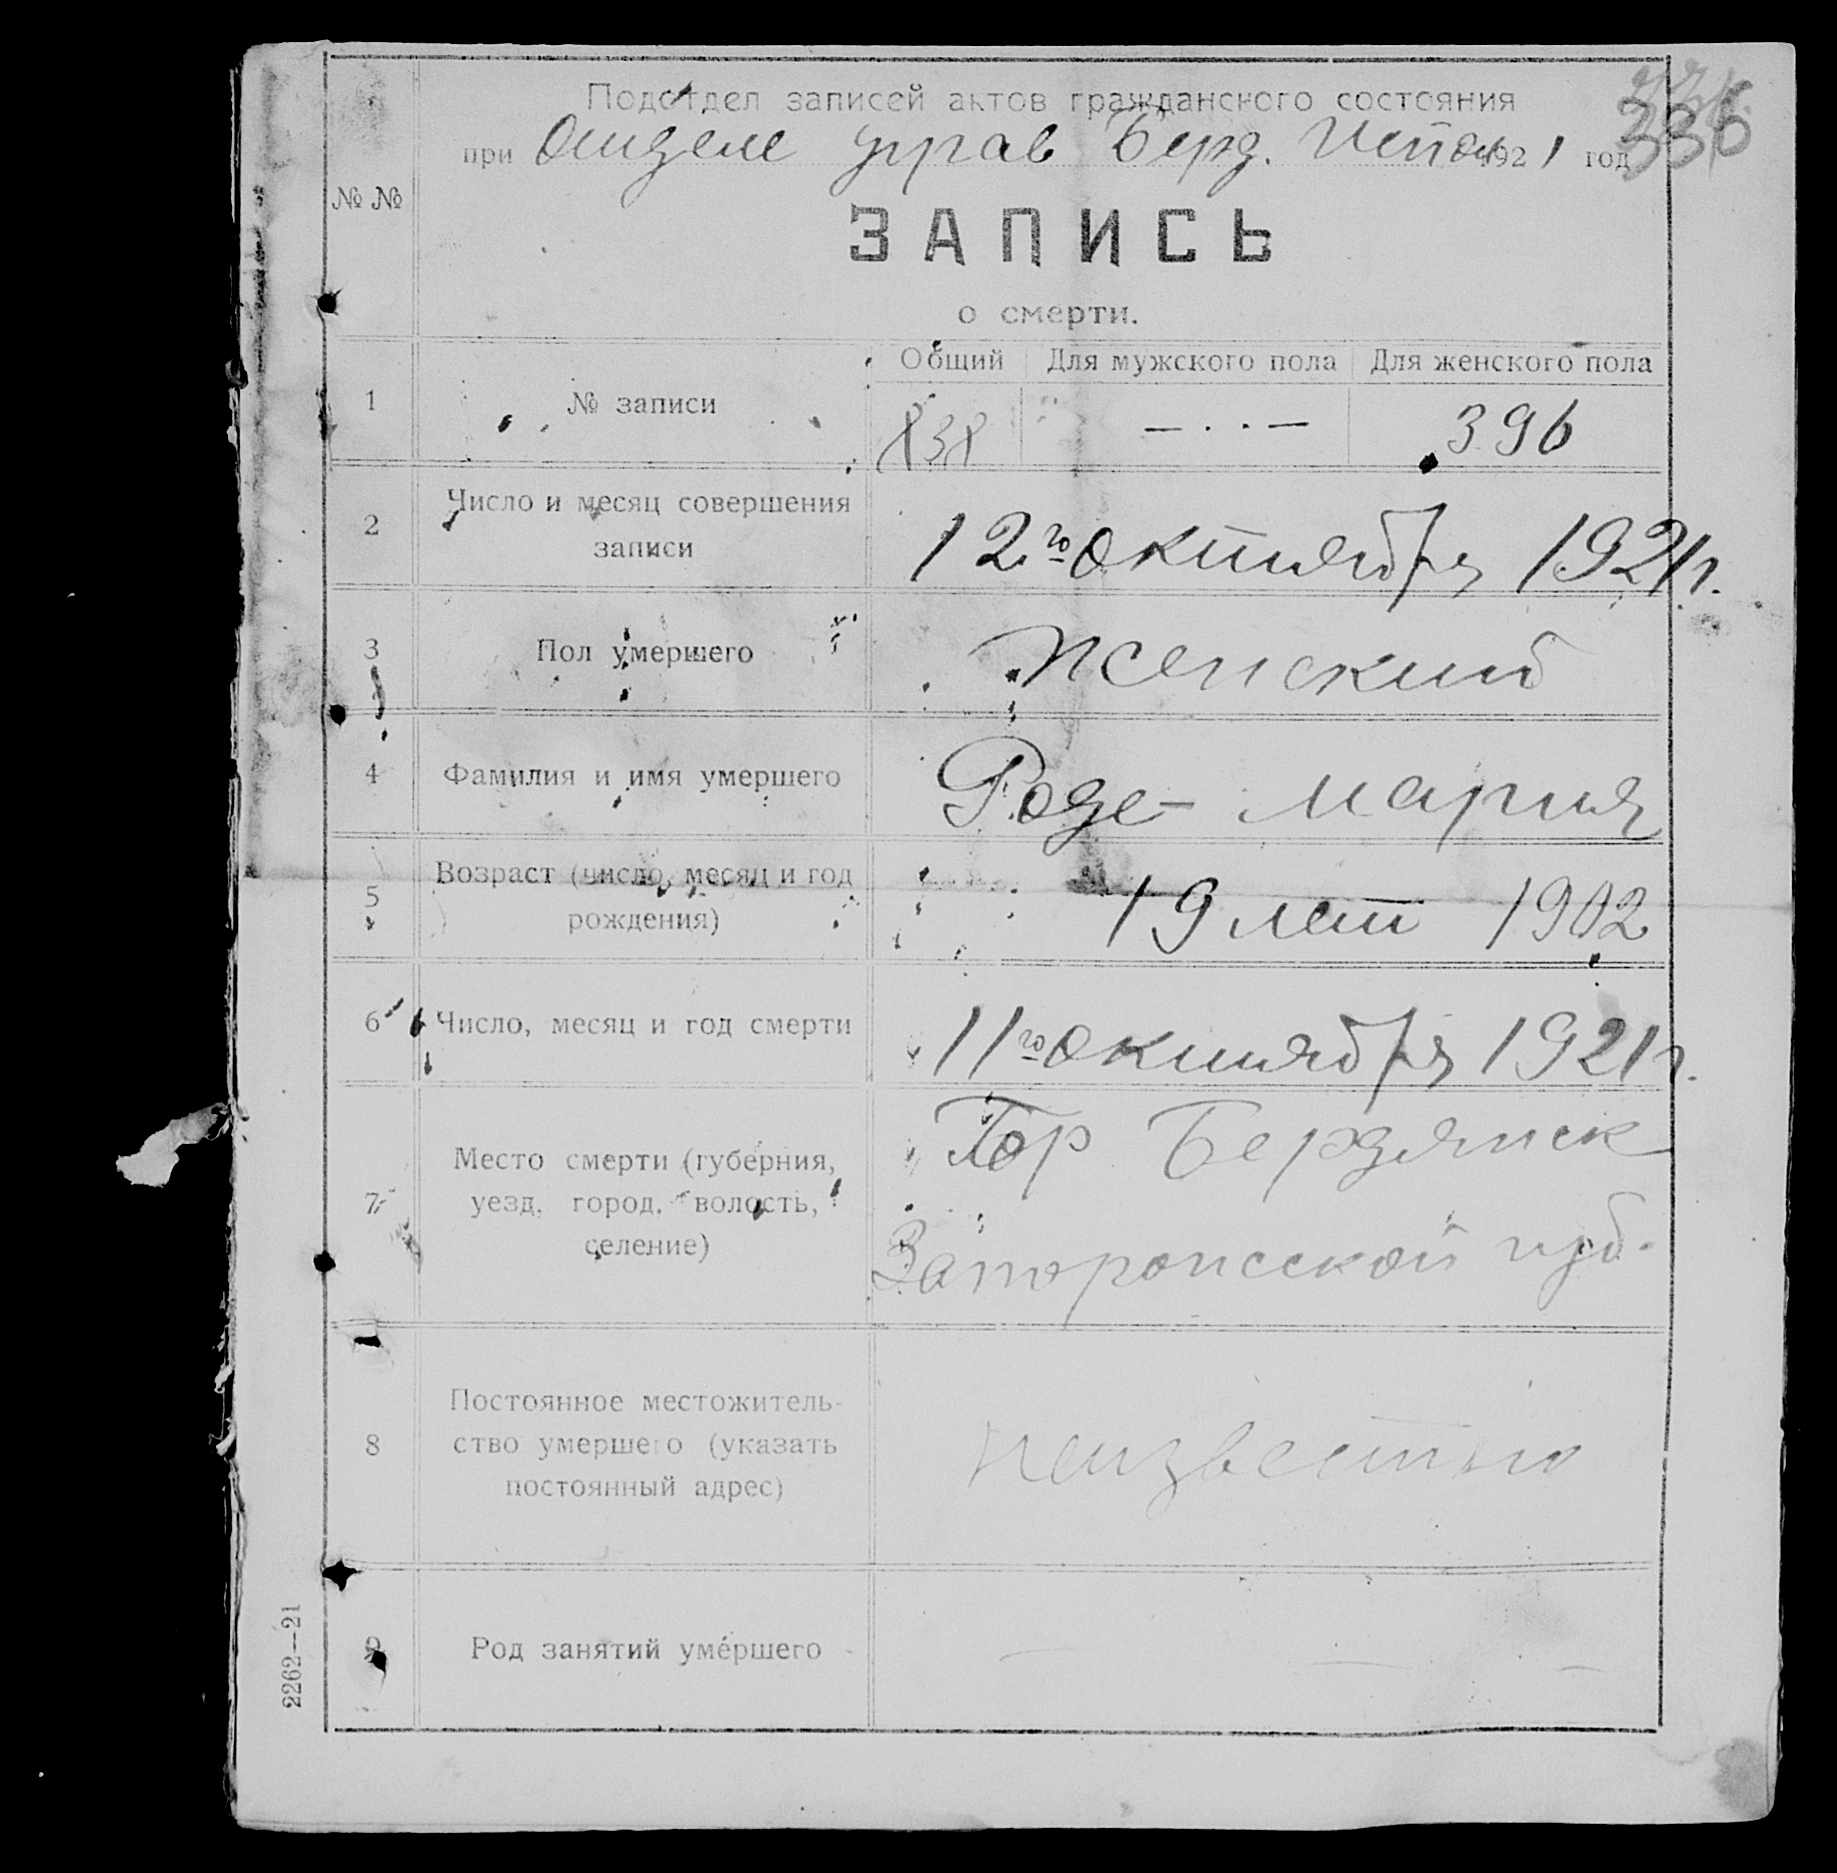 336
Подотдел записей актов гражданского состояния
при Отделе управ Берд. 1921 год
№ №
ЗАПИСЬ
о смерти.
Общий Для мужского пола Для женского пола
1 № записи 838 — · · — 396
2 Число и месяц совершения
записи
12го октября 1921 г.
3 Пол умершего Женский
4 Фамилия и имя умершего Роде – Мария
5 Возраст (число, месяц и год
рождения)
19 лет 1902
6 Число, месяц и год смерти 11го октября 1921 г.
7 Место смерти (губерния,
уезд, город, волость,
селение)
Гор Бердянск
Запорожской губ.
8 Постоянное местожитель-
ство умершего (указать
постоянный адрес)
неизвестно
9 Род занятий умершего — — —
2262—21